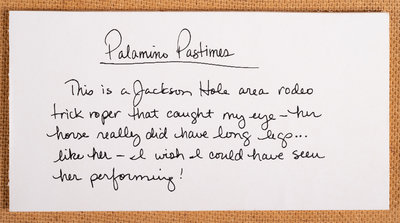 Palamino Pastimes
This is a Jackson Hole area rodeo
trick roper that caught my eye – her
horse really did have long legs...
like her – I wish I could have seen
her performing!